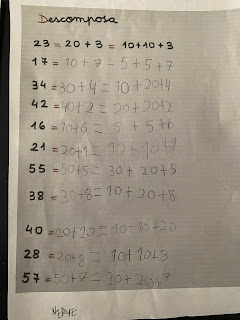 Descomposa
23 = 20 + 3 = 10+10+3
17 = 10 + 7 = 5 + 5 + 7
34 = 30 + 4 = 10 + 20+4
42 = 40 + 2 = 20 + 20 + 2
16 = 10+6 = 5 + 5 + 6
21 = 20+1 = 10 + 10 + 1
55 = 50+5 = 30 + 20 + 5
38 = 30+8 = 10 + 20 + 8
40 = 20+20 = 10+10+20
28 = 20+8 = 10+10+8
57 = 50+7 = 30+20+7